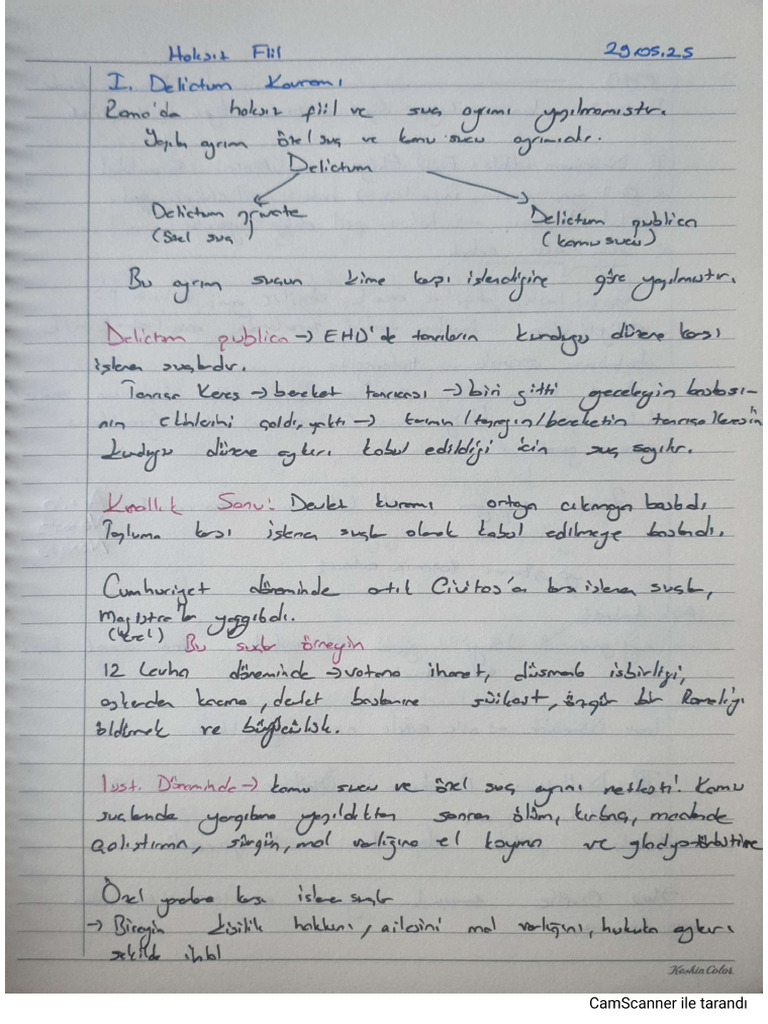 Haksız Fiil 29.05.25
I. Delictum Kavramı
Roma'da haksız fiil ve suç ayrımı yapılmamıştır.
Yapılan ayrım özel suç ve kamu suçu ayrımıdır.
Delictum
Delictum private Delictum publica
(Özel suç) (kamu suçu)
Bu ayrım suçun kime karşı işlendiğine göre yapılmıştır.
Delictum publica → EHD'de tanrıların kurduğu düzene karşı
işlenen suçlardır.
Tanrıça Keres → bereket tanrıçası → biri gitti geceleyin başkası-
nın ekinlerini çaldı, yaktı → tarımın/toprağın/bereketin tanrıça Keres'in
kurduğu düzene aykırı kabul edildiği için suç sayılır.
Krallık Sonu: Devlet kuramı ortaya çıkmaya başladı
Topluma karşı işlenen suçlar olarak kabul edilmeye başlandı.
Cumhuriyet döneminde artık Civitas'a karşı işlenen suçlar,
Magistra'lar yargıladı.
Bu suçlar örneğin
12 Levha döneminde → vatana ihanet, düşmanla işbirliği,
askerden kaçma, devlet başkanına süikast, özgür bir Romalıyı
öldürmek ve büyücülük.
Iust. Döneminde → kamu suçu ve özel suç ayrımı netleşti. Kamu
suçlarında yargılama yapıldıktan sonra ölüm, kırbaç, madende
çalıştırma, sürgün, mal varlığına el koyma ve
Özel karşı işlenen suçlar
→ Bireyin kişilik hakkını, ailesini mal varlığını, hukuka aykırı
şekilde ihlal
KeskinColor
CamScanner ile tarandı